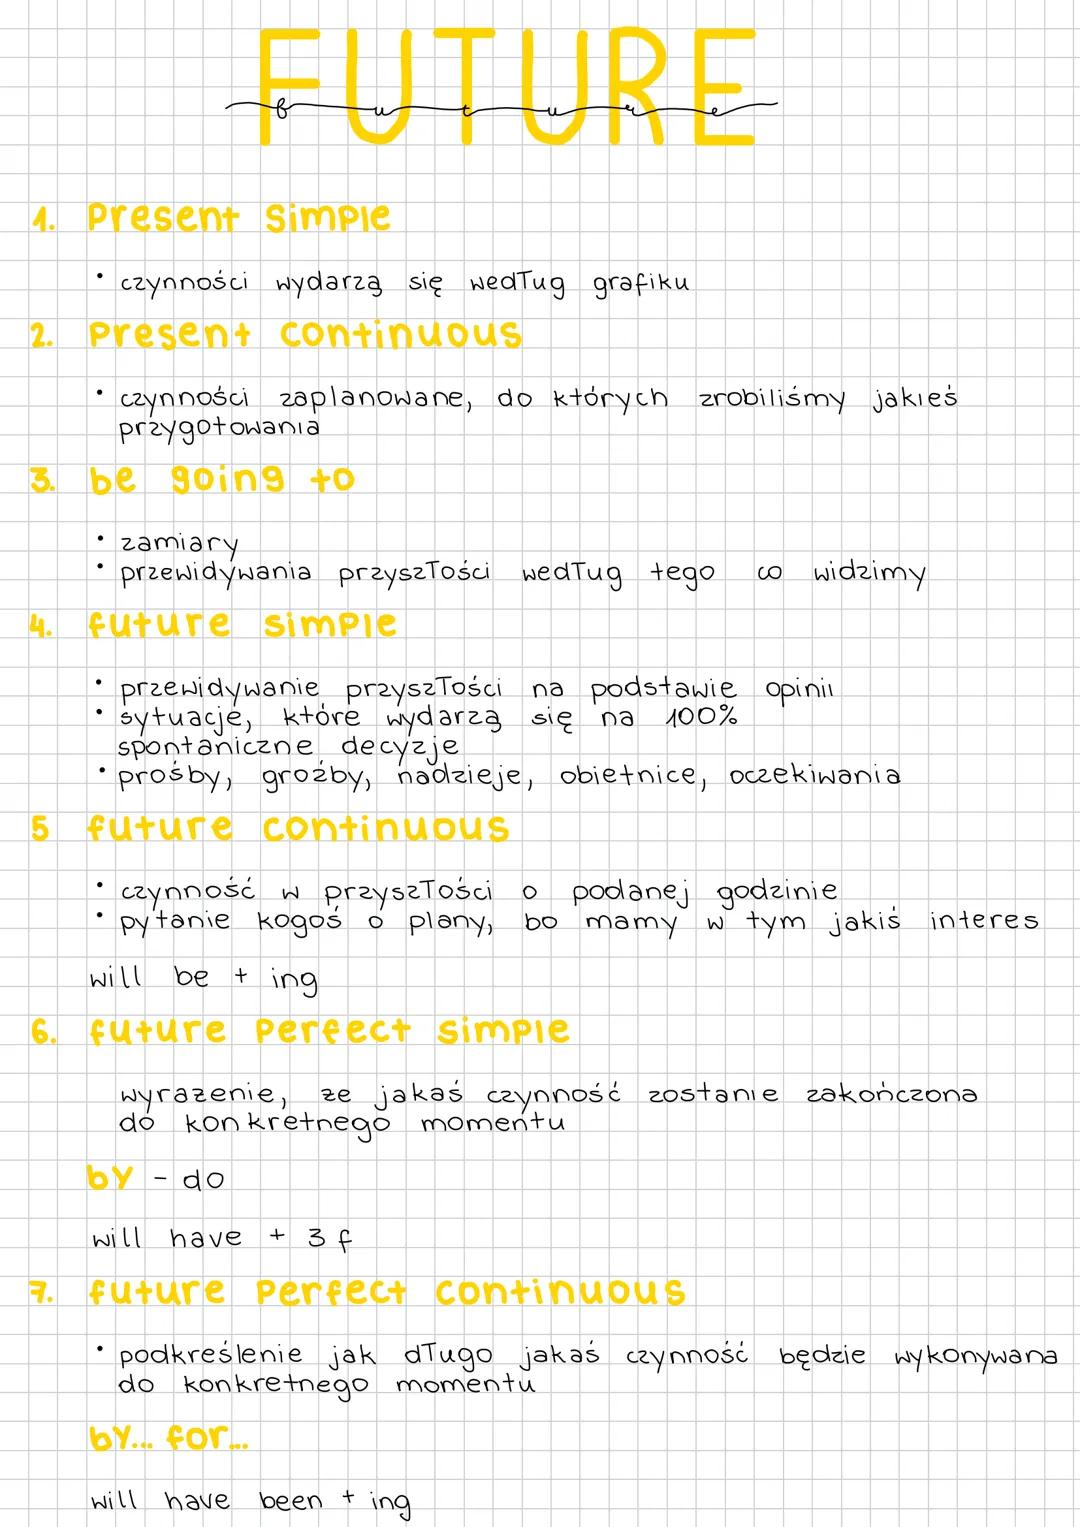 FUTURE
future
1. Present Simple
• czynności wydarzą się według grafiku
2. Present continuous
• czynności zaplanowane, do których zrobiliśmy jakieś
przygotowania
3. be going to
• zamiary
• przewidywania przyszłości według tego co widzimy
4. future simple
• przewidywanie przyszłości na podstawie opinii
• sytuacje, które wydarzą się na 100%
spontaniczne decyzje
• prośby, groźby, nadzieje, obietnice, oczekiwania
5 future continuous
• czynność w przyszłości o podanej godzinie
• pytanie kogoś o plany, bo mamy w tym jakiś interes
will be + ing
6. future perfect simple
wyrażenie, że jakaś czynność zostanie zakończona
do konkretnego momentu
by - do
will have + 3 f
7. future perfect continuous
• podkreślenie jak długo jakaś czynność będzie wykonywana
do konkretnego momentu
by... for...
will have been + ing